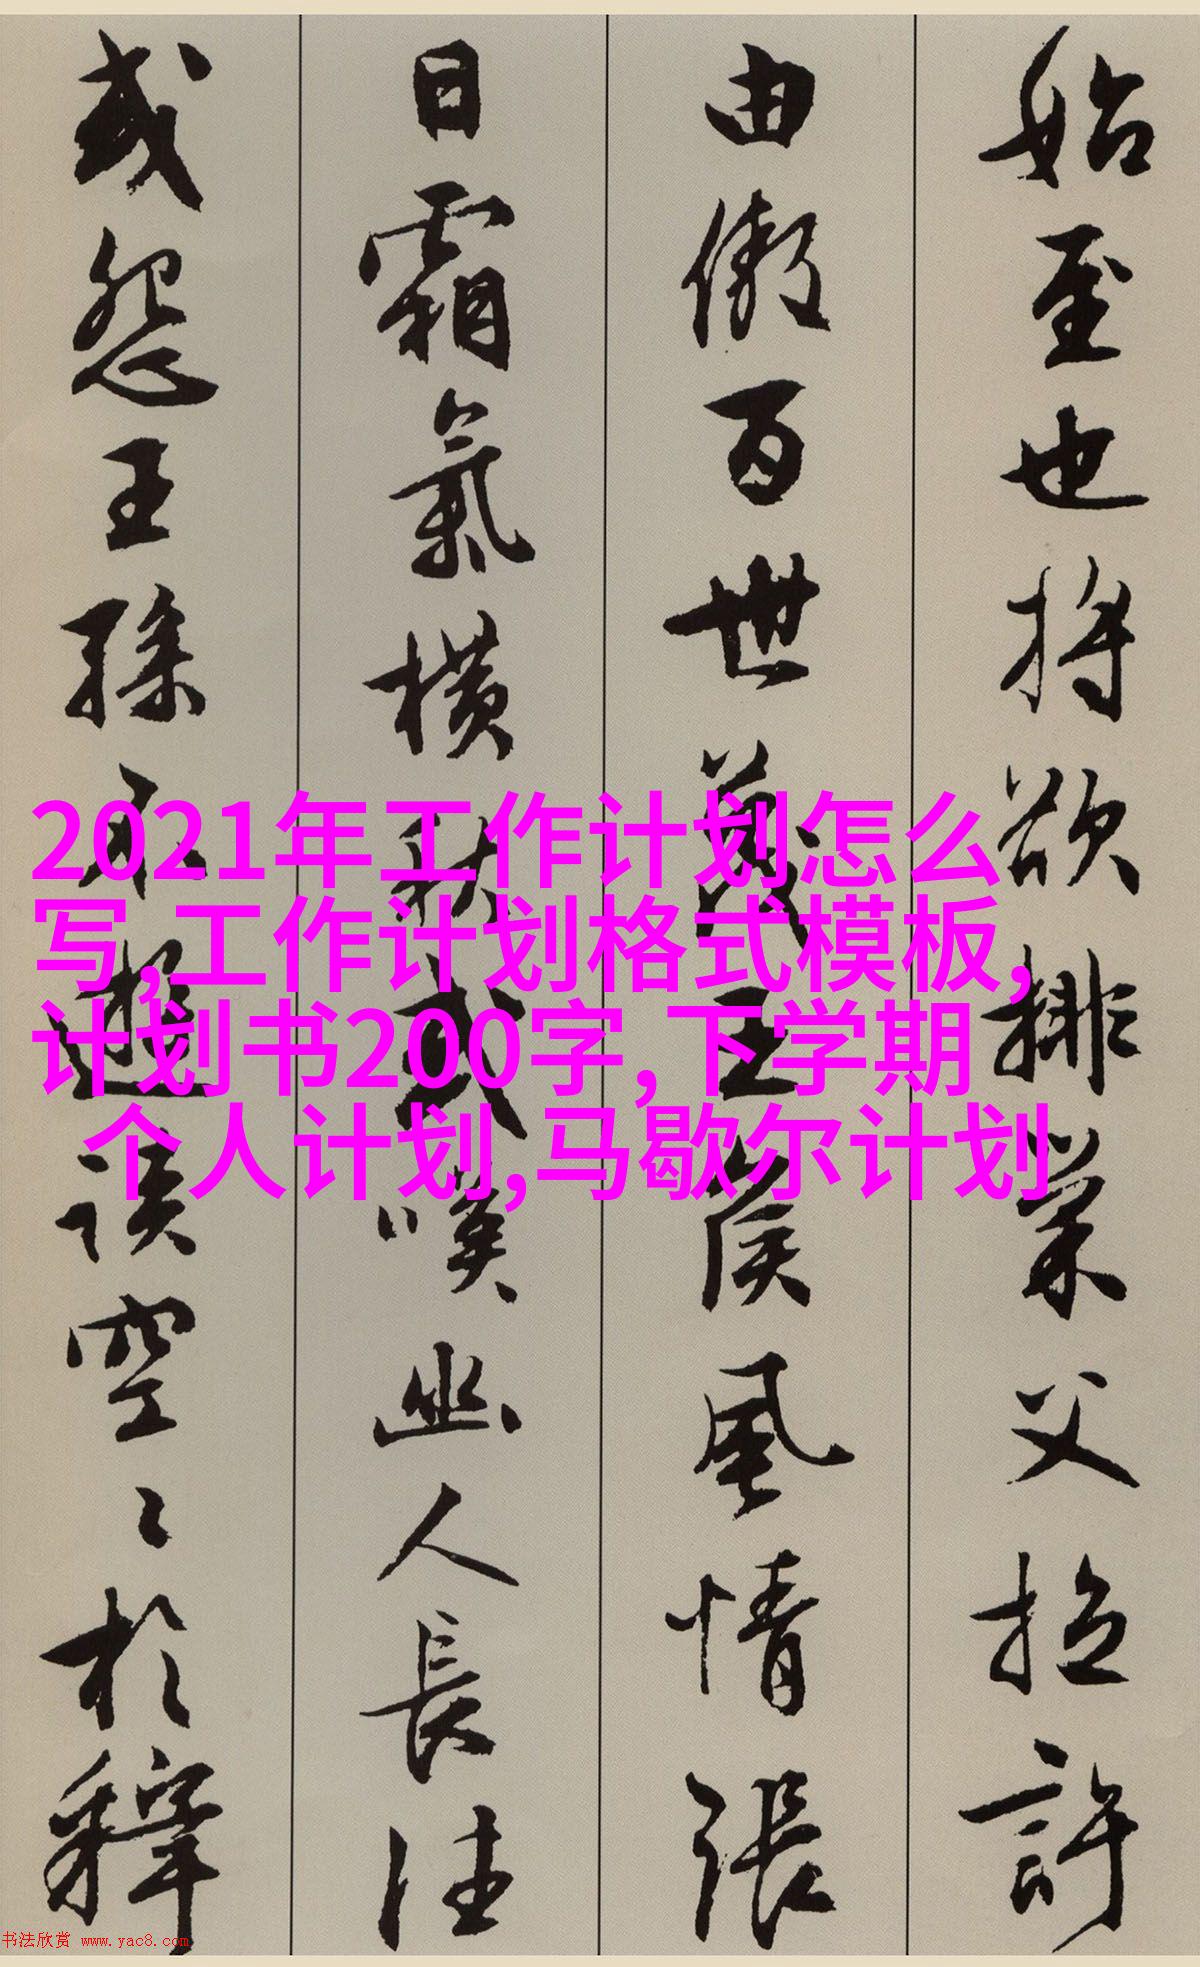 始至也將欲排巢父拉許
由傲百世蔑王侯風情張
日霜氣橫秋或嘆幽人長往
或怨王孫不遊談空〻於釋
2021年工作计划怎么
写,工作计划格式模板,
计划书200字,下学期
个人计划,马歇尔计划
书法欣赏 www.yac8.com